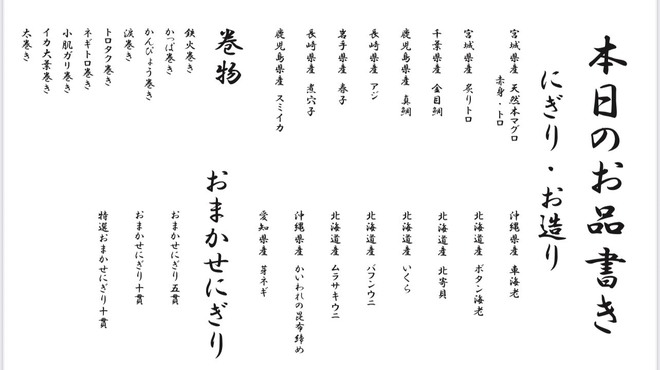 本日のお品書き
にぎり・お造り
宮城県産 天然本マグロ
赤身・トロ
宮城県産 炙りトロ
千葉県産 金目鯛
鹿児島県産 真鯛
長崎県産 アジ
岩手県産 春子
長崎県産 煮穴子
鹿児島県産 スミイカ
沖縄県産 車海老
北海道産 ボタン海老
北海道産 北寄貝
北海道産 いくら
北海道産 バフンウニ
北海道産 ムラサキウニ
沖縄県産 かいわれの昆布締め
愛知県産 芽ネギ
巻物
鉄火巻き
かっぱ巻き
かんぴょう巻き
涙巻き
トロタク巻き
ネギトロ巻き
小肌ガリ巻き
イカ大葉巻き
太巻き
おまかせにぎり
おまかせにぎり五貫
おまかせにぎり十貫
特選おまかせにぎり十貫